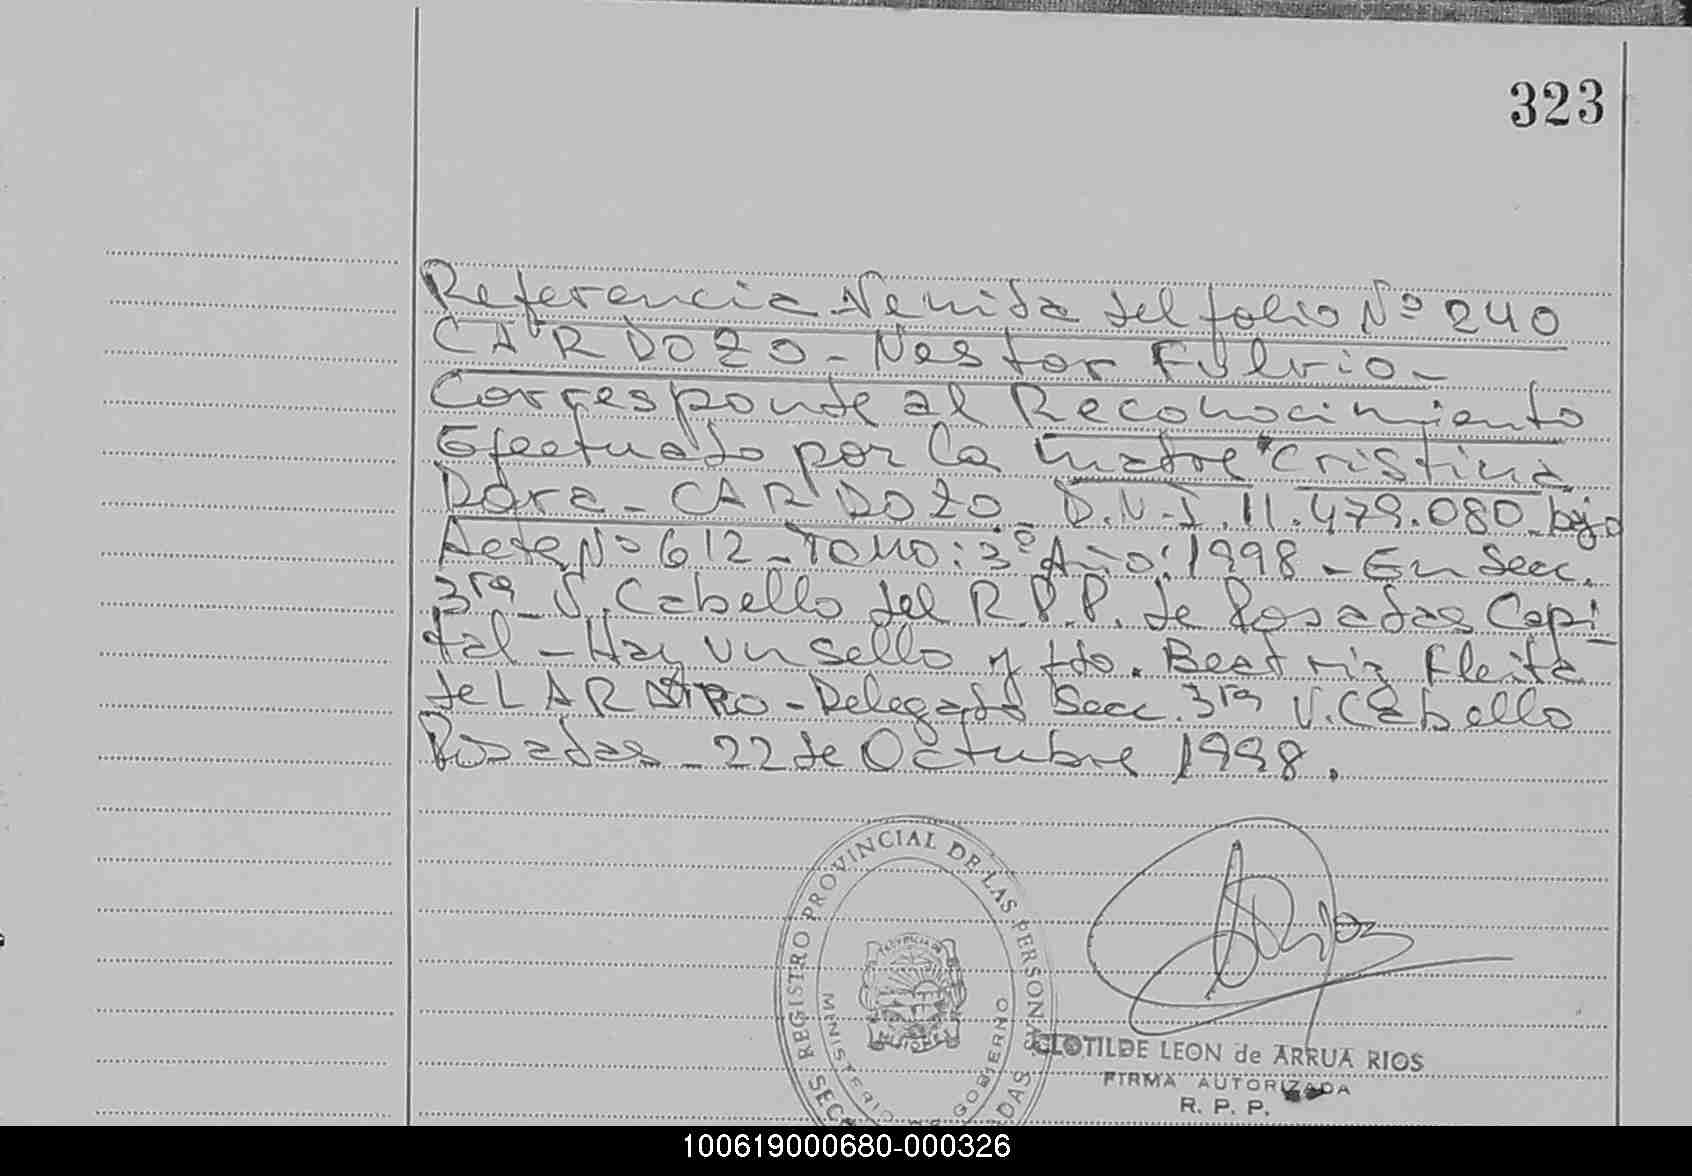 323
Referencia Venida del folio Nº 240
CARDOZO - Nestor Fulvio -
Corresponde al Reconocimiento
Efectuado por la madre Cristina
Dora - CARDOZO D.N.I. 11.479.080 bajo
Acta Nº 612 - Tomo: 3º Año: 1998 - En Secc.
3ra V. Cabello del R.P.P. de Posadas Capi-
tal - Hay un sello y fdo. Beatriz Fleita
de - Delegado Secc. 3ra V. Cabello
Posadas - 22 de Octubre 1998.
REGISTRO PROVINCIAL DE LAS PERSONAS
MINISTERIO GOBIERNO
CLOTILDE LEON de ARRUA RIOS
FIRMA AUTORIZADA
R. P. P.
100619000680-000326